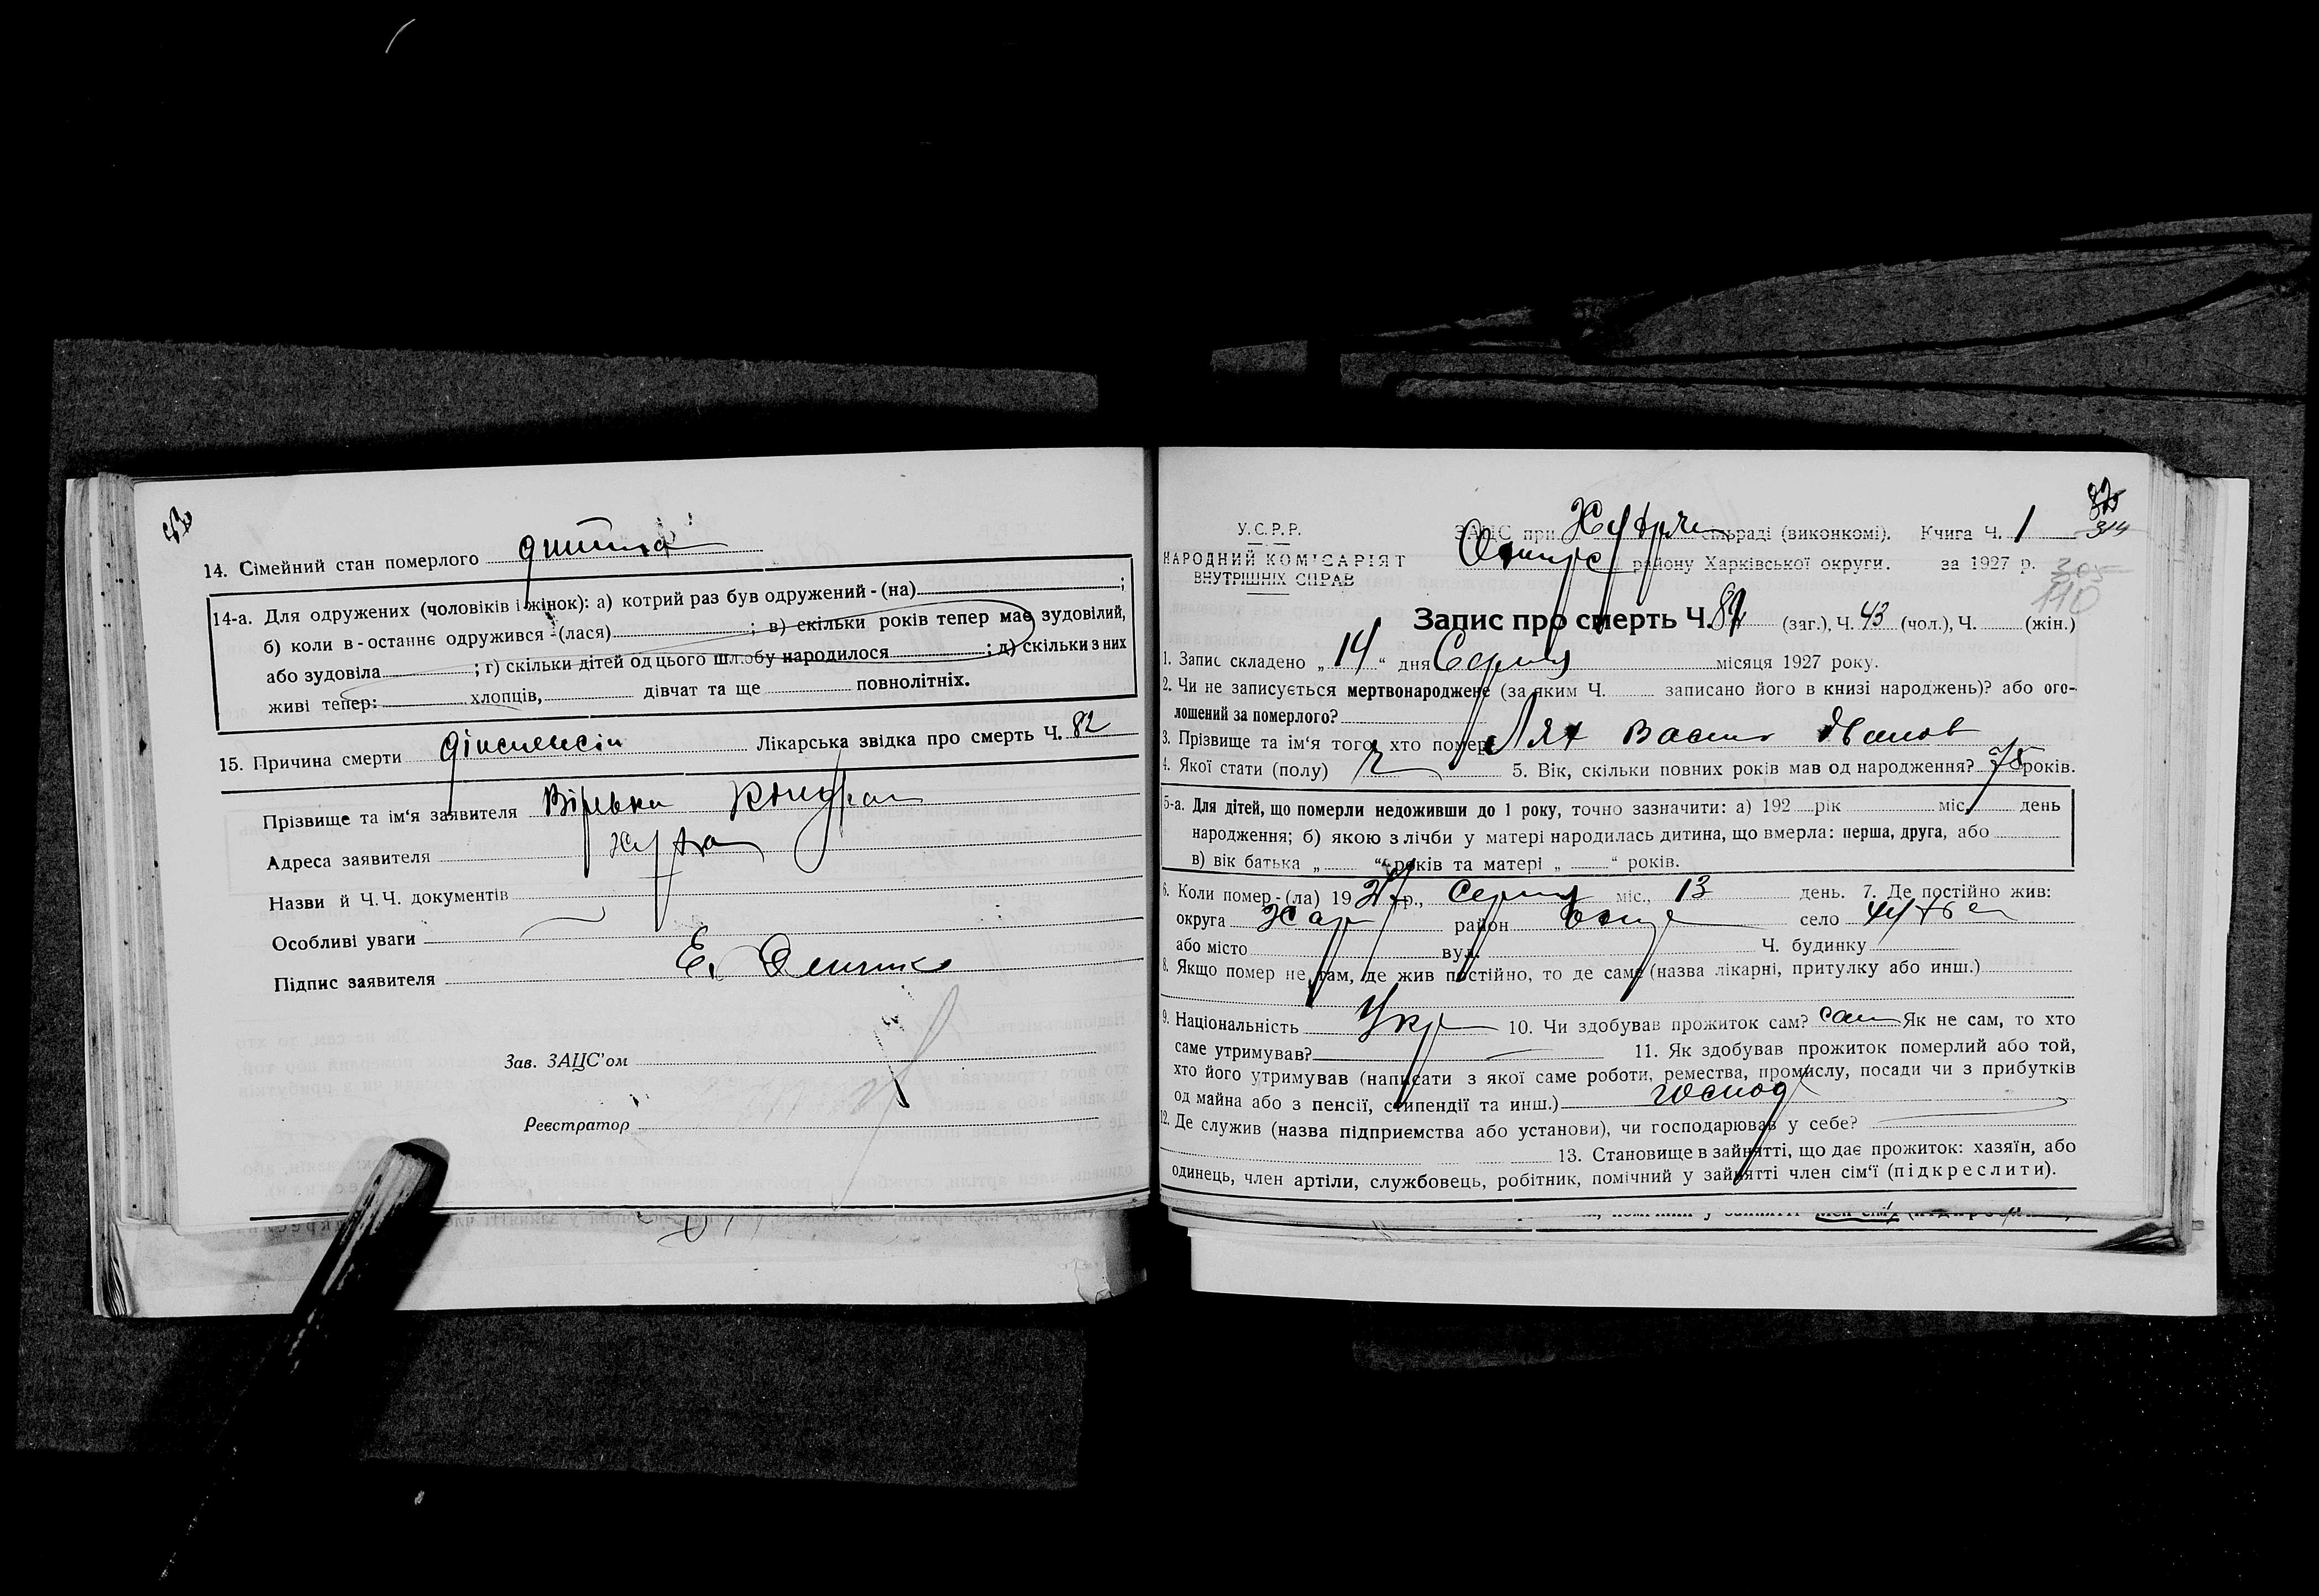 14. Сімейний стан померлого дитина
14-а. Для одружених (чоловіків і жінок): а) котрий раз був одружений - (на) ;
б) коли в - останнє одружився - (лася) ; в) скільки років тепер має зудовілий,
або зудовіла ; г) скільки дітей од цього шлюбу народилося ; д) скільки з них
живі тепер: хлопців, дівчат та ще повнолітніх.
15. Причина смерти Лікарська звідка про смерть Ч. 82
Прізвище та ім'я заявителя Кондрат
Адреса заявителя
Назви й Ч. Ч. документів
Особливі уваги
Підпис заявителя Е.
Зав. ЗАЦС'ом
Реєстратор
У.С.Р.Р.
НАРОДНИЙ КОМІСАРІЯТ
ВНУТРІШНІХ СПРАВ
ЗАЦС при сільраді (виконкомі). Книга Ч. 1
району Харківської округи. за 1927 р.
314
305
110
Запис про смерть Ч. (заг.), Ч. 43 (чол.), Ч. (жін.)
1. Запис складено „ 14 “ дня Серпня місяця 1927 року.
2. Чи не записується мертвонароджене (за яким Ч. записано його в книзі народжень)? або ого-
лошений за померлого?
3. Прізвище та ім'я того, хто помер Лях Васил Іванов
4. Якої стати (полу) ч 5. Вік, скільки повних років мав од народження? 75 років.
5-а. Для дітей, що померли недоживши до 1 року, точно зазначити: а) 192 рік міс. день
народження; б) якою з лічби у матері народилась дитина, що вмерла: перша, друга, або
в) вік батька „ “ років та матері „ “ років.
6. Коли помер - (ла) 1927 р., Серпня міс., 13 день. 7. Де постійно жив:
округа Хар район село
або місто вул. Ч. будинку
8. Якщо помер не там, де жив постійно, то де саме (назва лікарні, притулку або инш.)
9. Національність Укр 10. Чи здобував прожиток сам? сам Як не сам, то хто
саме утримував? 11. Як здобував прожиток померлий або той,
хто його утримував (написати з якої саме роботи, ремества, промислу, посади чи з прибутків
од майна або з пенсії, стипендії та инш.) господ
12. Де служив (назва підприємства або установи), чи господарював у себе?
13. Становище в зайнятті, що дає прожиток: хазяїн, або
одинець, член артіли, службовець, робітник, помічний у зайнятті член сім'ї (підкреслити).